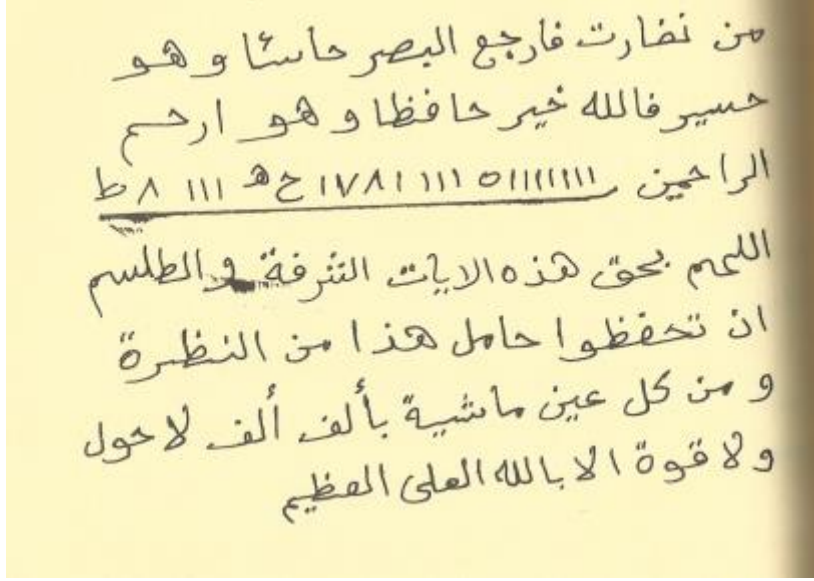 من نضارت فارجع البصر خاسئا و هو
حسير فالله خير حافظا و هو ارحم
الراحمين ١١١١١١١١٥ ١١١ ١٧٨١ ح ھ ١١١ ٨ ط
اللهم بحق هذه الايات الشرفة و الطلسم
ان تحفظوا حامل هذا من النظرة
و من كل عين ماشية بألف ألف لا حول
ولا قوة الا بالله العلى العظيم